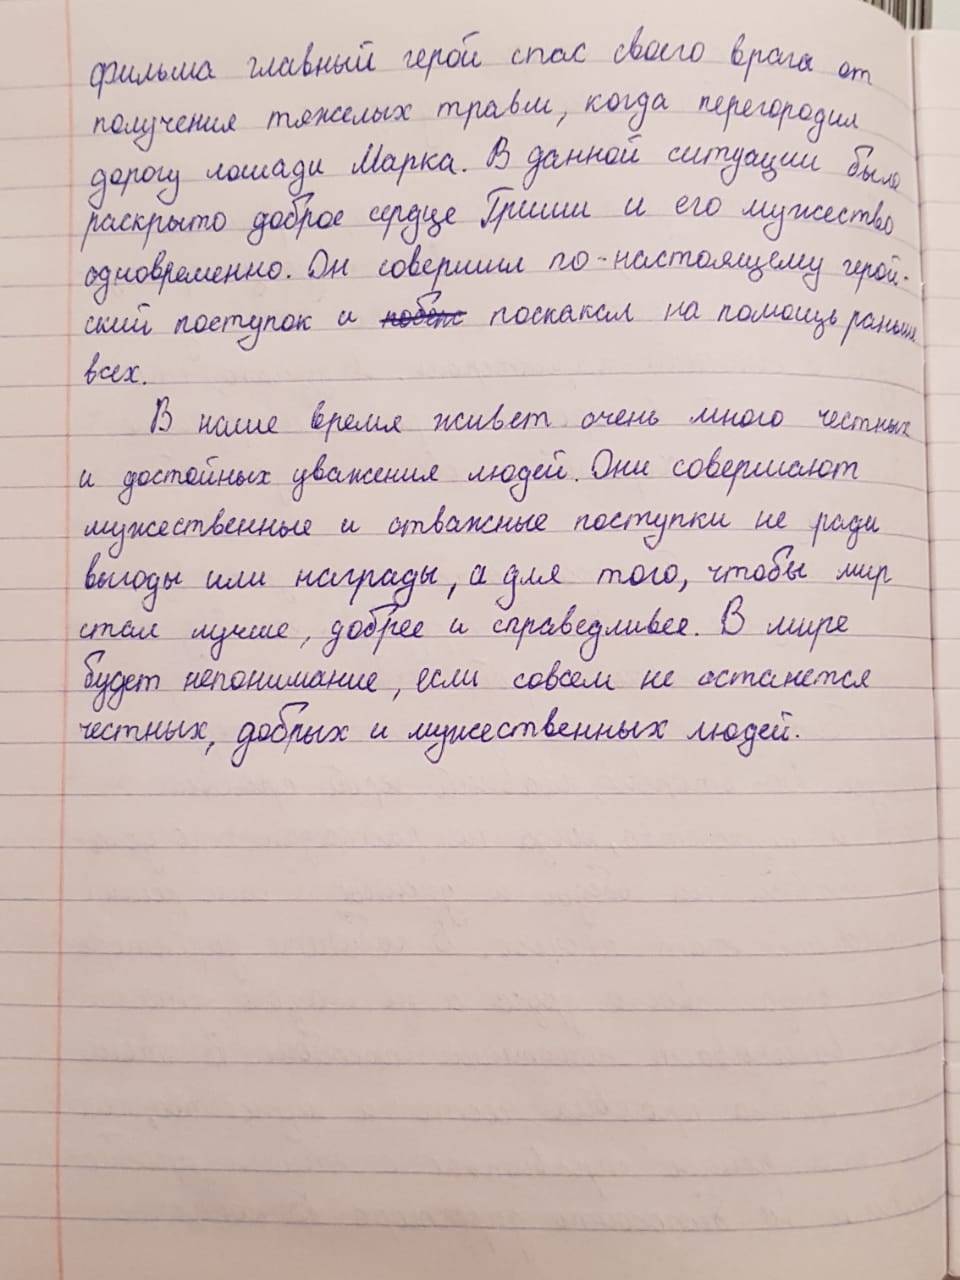 фильма главный герой спас своего врага от
получения тяжелых травм, когда перегородил
дорогу лошади Марка. В данной ситуации было
раскрыто доброе сердце Гриши и его мужество
одновременно. Он совершил по-настоящему герой-
ский поступок и поскакал на помощь раньше
всех.
В наше время живет очень много честных
и достойных уважения людей. Они совершают
мужественные и отважные поступки не ради
выгоды или награды, а для того, чтобы мир
стал лучше, добрее и справедливее. В мире
будет непонимание, если совсем не останется
честных, добрых и мужественных людей.